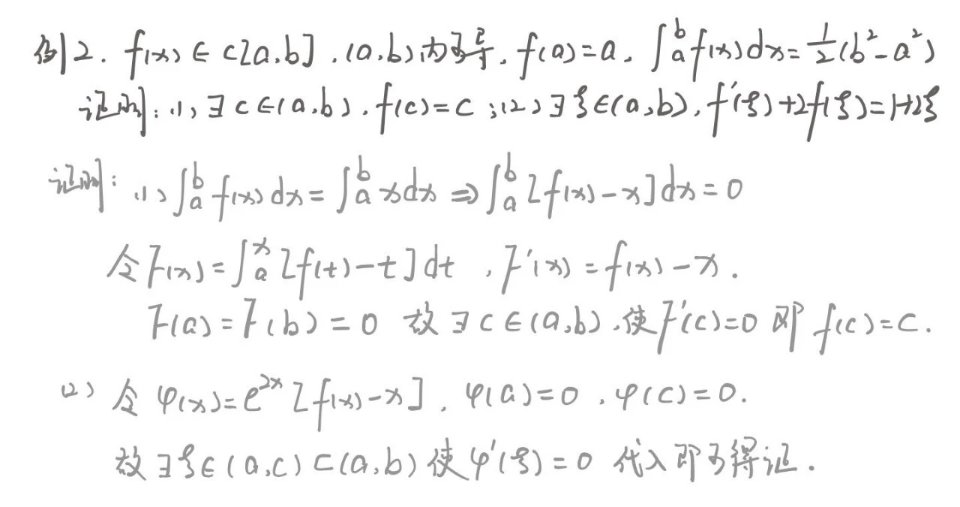 例2. f(x)∈C[a,b],(a,b)内可导,f(a)=a,∫_a^b f(x)dx=1/2(b²-a²)
证明:(1)∃c∈(a,b),f(c)=c;(2)∃ξ∈(a,b),f'(ξ)+2f(ξ)=1+2ξ
证明:(1)∫_a^b f(x)dx=∫_a^b xdx⇒∫_a^b[f(x)-x]dx=0
令F(x)=∫_a^x[f(t)-t]dt,F'(x)=f(x)-x.
F(a)=F(b)=0 故∃c∈(a,b),使F'(c)=0 即f(c)=c.
(2)令φ(x)=e^{2x}[f(x)-x],φ(a)=0,φ(c)=0.
故∃ξ∈(a,c)⊂(a,b)使φ'(ξ)=0 代入即可得证.